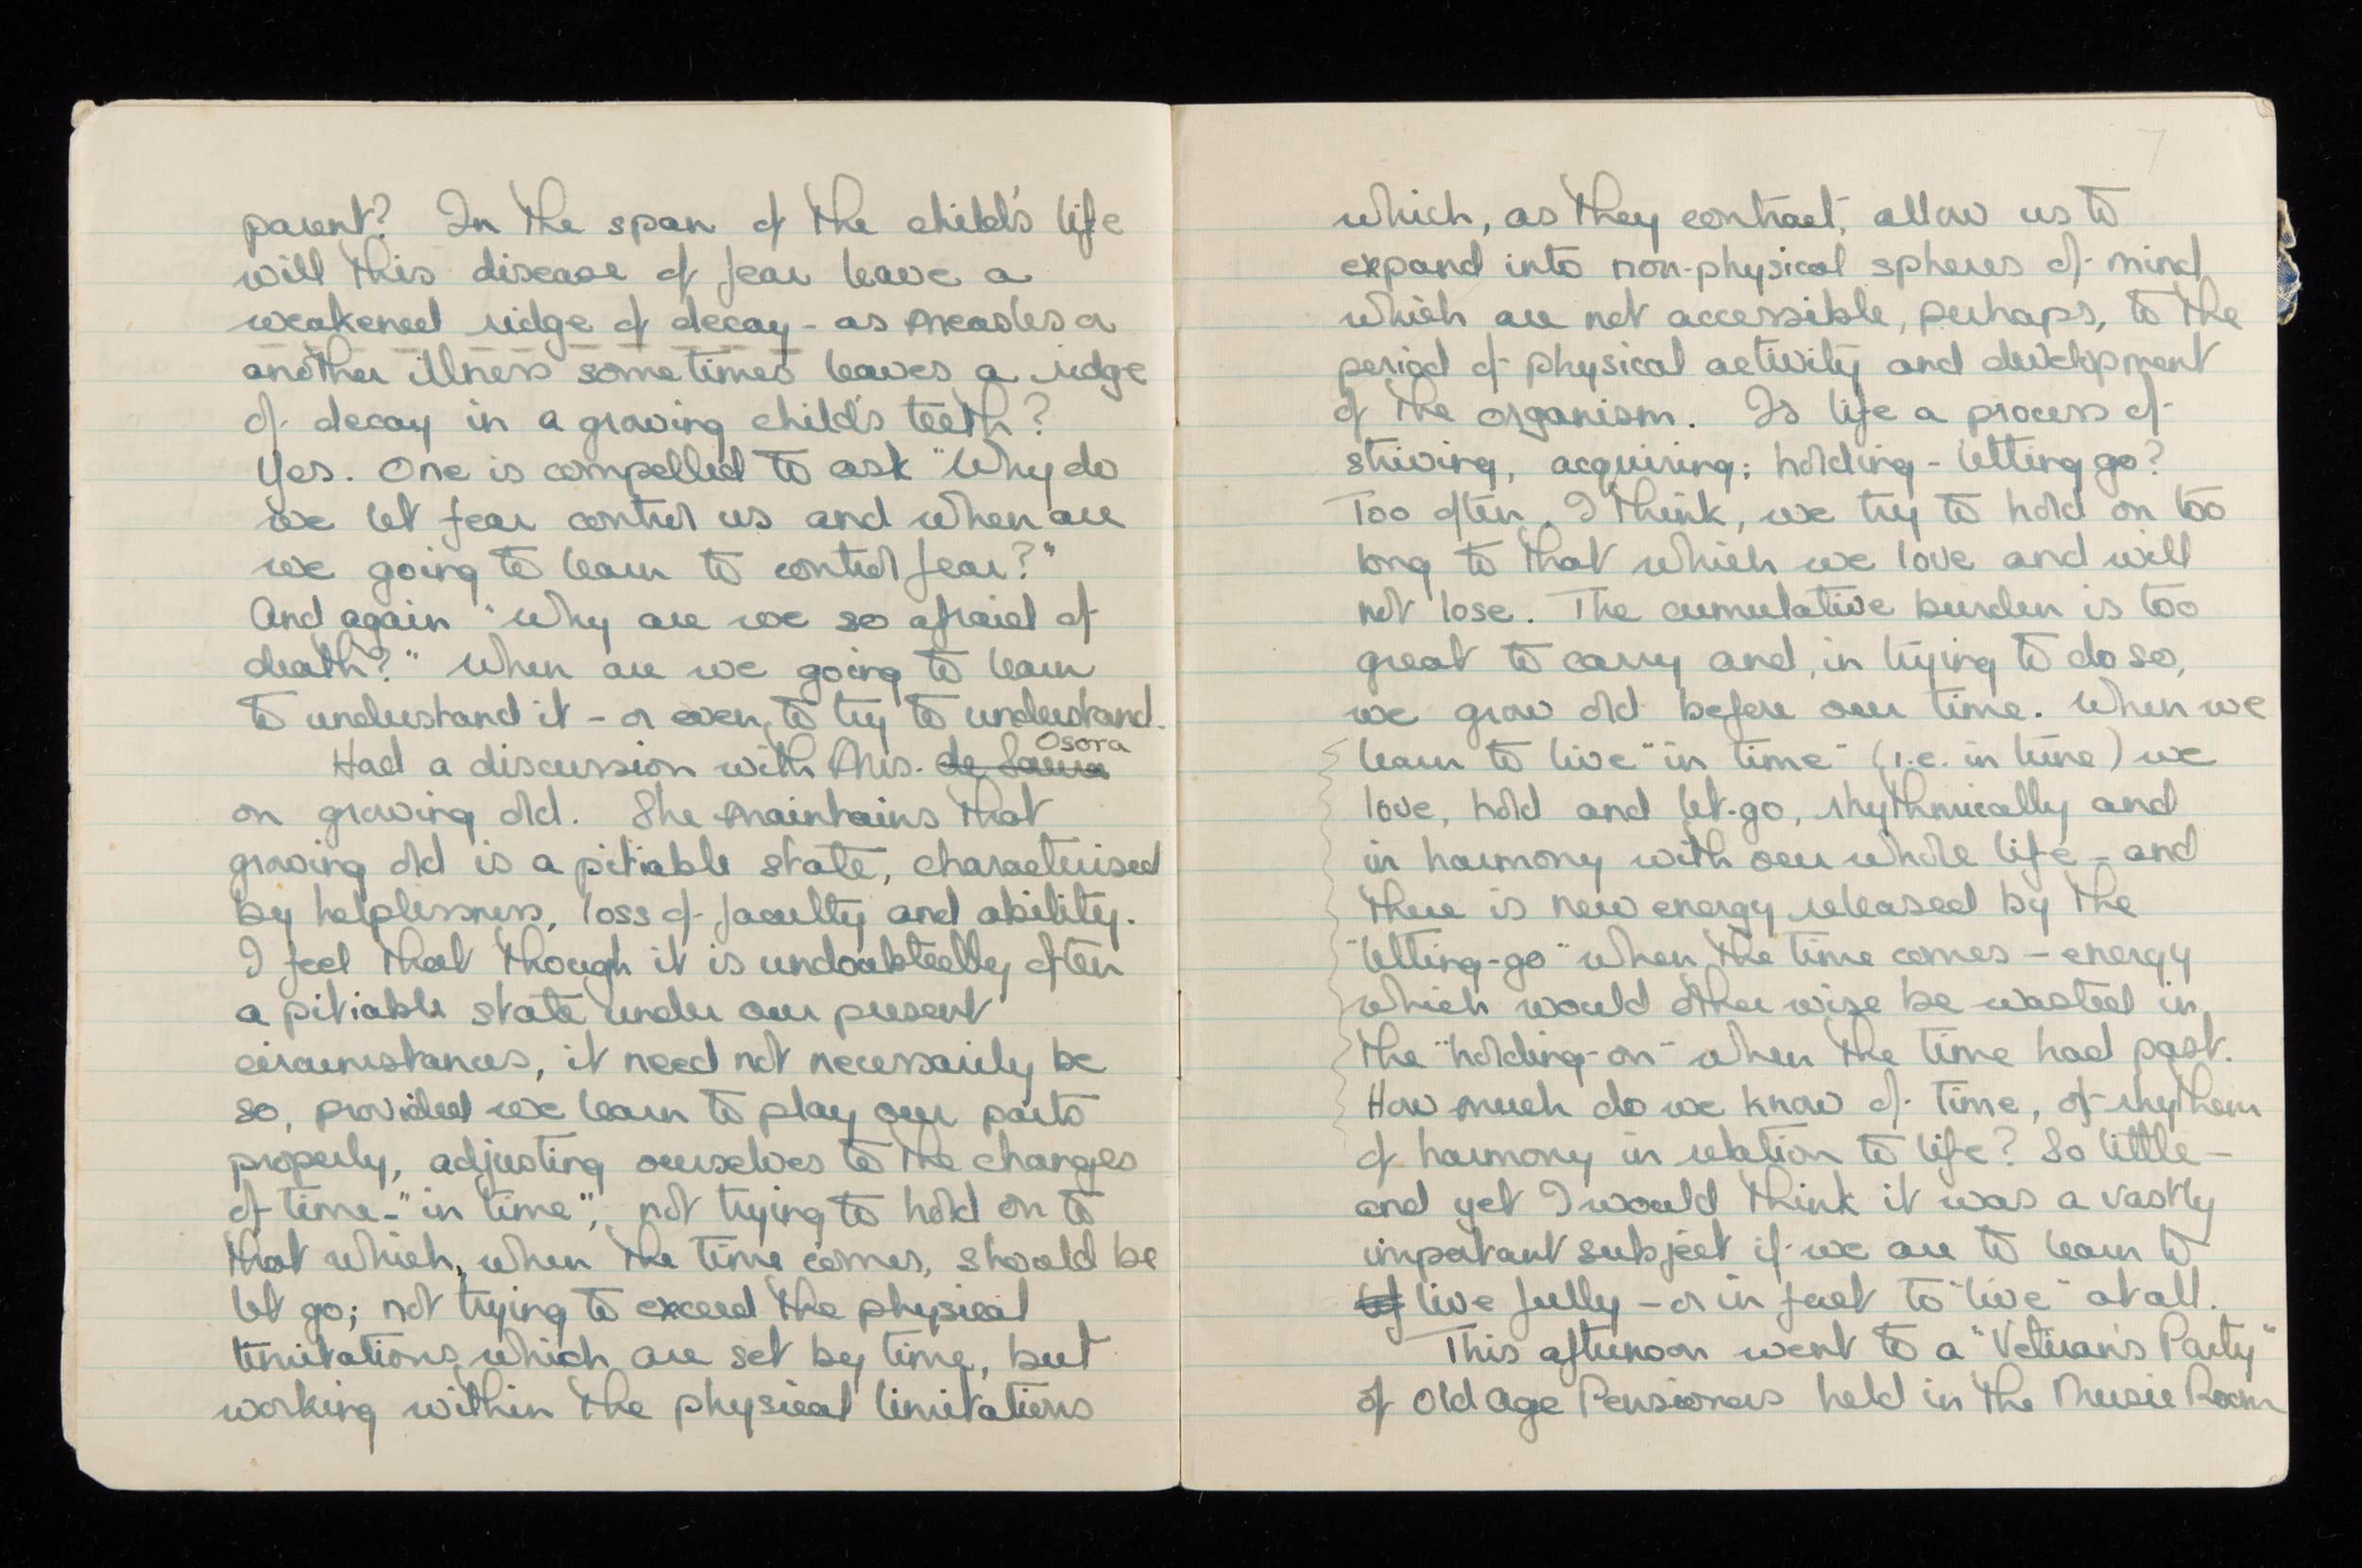 parent? In the span of the child's life
will this disease of fear leave a
weakened ridge of decay - as measles or
another illness sometimes leaves a ridge
of decay in a growing child's teeth?
Yes. One is compelled to ask "Why do
we let fear control us and when are
we going to learn to control fear?"
And again "why are we so afraid of
death?" When are we going to learn
to understand it - or even to try to understand.
Osora
Had a discussion with Mrs. de
on growing old. She maintains that
growing old is a pitiable state, characterised
by helplessness, loss of faculty and ability.
I feel that though it is undoubtedly often
a pitiable state under our present
circumstances, it need not necessarily be
so, provided we learn to play our parts
properly, adjusting ourselves to the changes
of time - "in time", not trying to hold on to
that which, when the time comes, should be
let go; not trying to exceed the physical
limitations which are set by time, but
working within the physical limitations
7
which, as they contract, allow us to
expand into non-physical spheres of mind
which are not accessible, perhaps, to the
period of physical activity and development
of the organism. Is life a process of
striving, acquiring; holding - letting go?
Too often, I think, we try to hold on too
long to that which we love and will
not lose. The cumulative burden is too
great to carry and, in trying to do so,
we grow old before our time. When we
learn to live "in time" (i.e. in tune) we
love, hold and let-go, rhythmically and
in harmony with our whole life - and
there is new energy released by the
"letting-go" when the time comes - energy
which would otherwise be wasted in
the "holding-on" when the time had past.
How much do we know of time, of rhythem
of harmony in relation to life? So little -
and yet I would think it was a vastly
important subject if we are to learn to
live fully - or in fact to "live" at all.
This afternoon went to a "Veteran's Party"
of Old Age Pensioners held in the Music Room